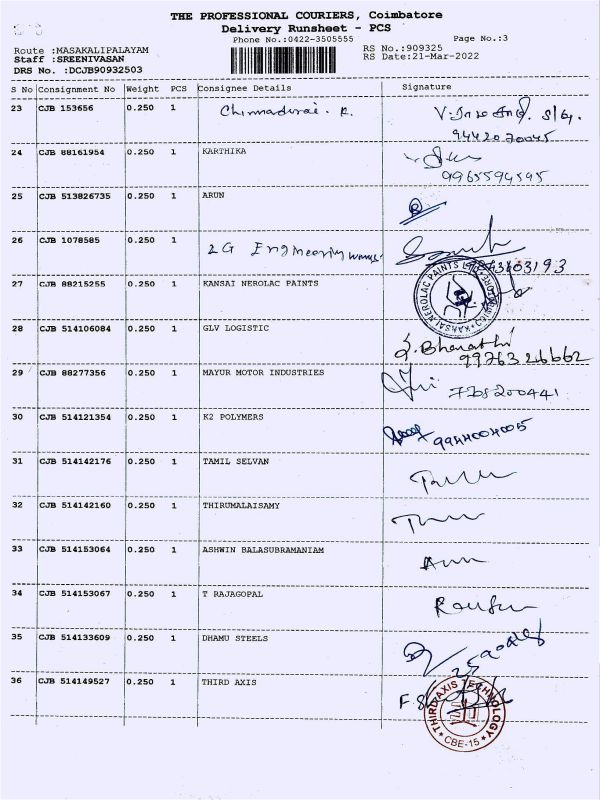 THE PROFESSIONAL COURIERS, Coimbatore
Delivery Runsheet - PCS
Phone No.:0422-3505555 Page No.:3
Route :MASAKALIPALAYAM RS No.:909325
Staff :SREENIVASAN RS Date:21-Mar-2022
DRS No. :DCJB90932503
S No Consignment No Weight PCS Consignee Details Signature
23 CJB 153656 0.250 1 Chinnadurai. R.
9442070045
24 CJB 88161954 0.250 1 KARTHIKA
9965594595
25 CJB 513826735 0.250 1 ARUN
26 CJB 1078585 0.250 1 LG Engineering works
27 CJB 88215255 0.250 1 KANSAI NEROLAC PAINTS
KANSAI NEROLAC PAINTS LTD
28 CJB 514106084 0.250 1 GLV LOGISTIC S. Bharathi
9976326662
29 CJB 88277356 0.250 1 MAYUR MOTOR INDUSTRIES
30 CJB 514121354 0.250 1 K2 POLYMERS
31 CJB 514142176 0.250 1 TAMIL SELVAN
32 CJB 514142160 0.250 1 THIRUMALAISAMY
33 CJB 514153064 0.250 1 ASHWIN BALASUBRAMANIAM
34 CJB 514153067 0.250 1 T RAJAGOPAL
35 CJB 514133609 0.250 1 DHAMU STEELS
36 CJB 514149527 0.250 1 THIRD AXIS
THIRD AXIS TECHNOLOGY
CBE-15